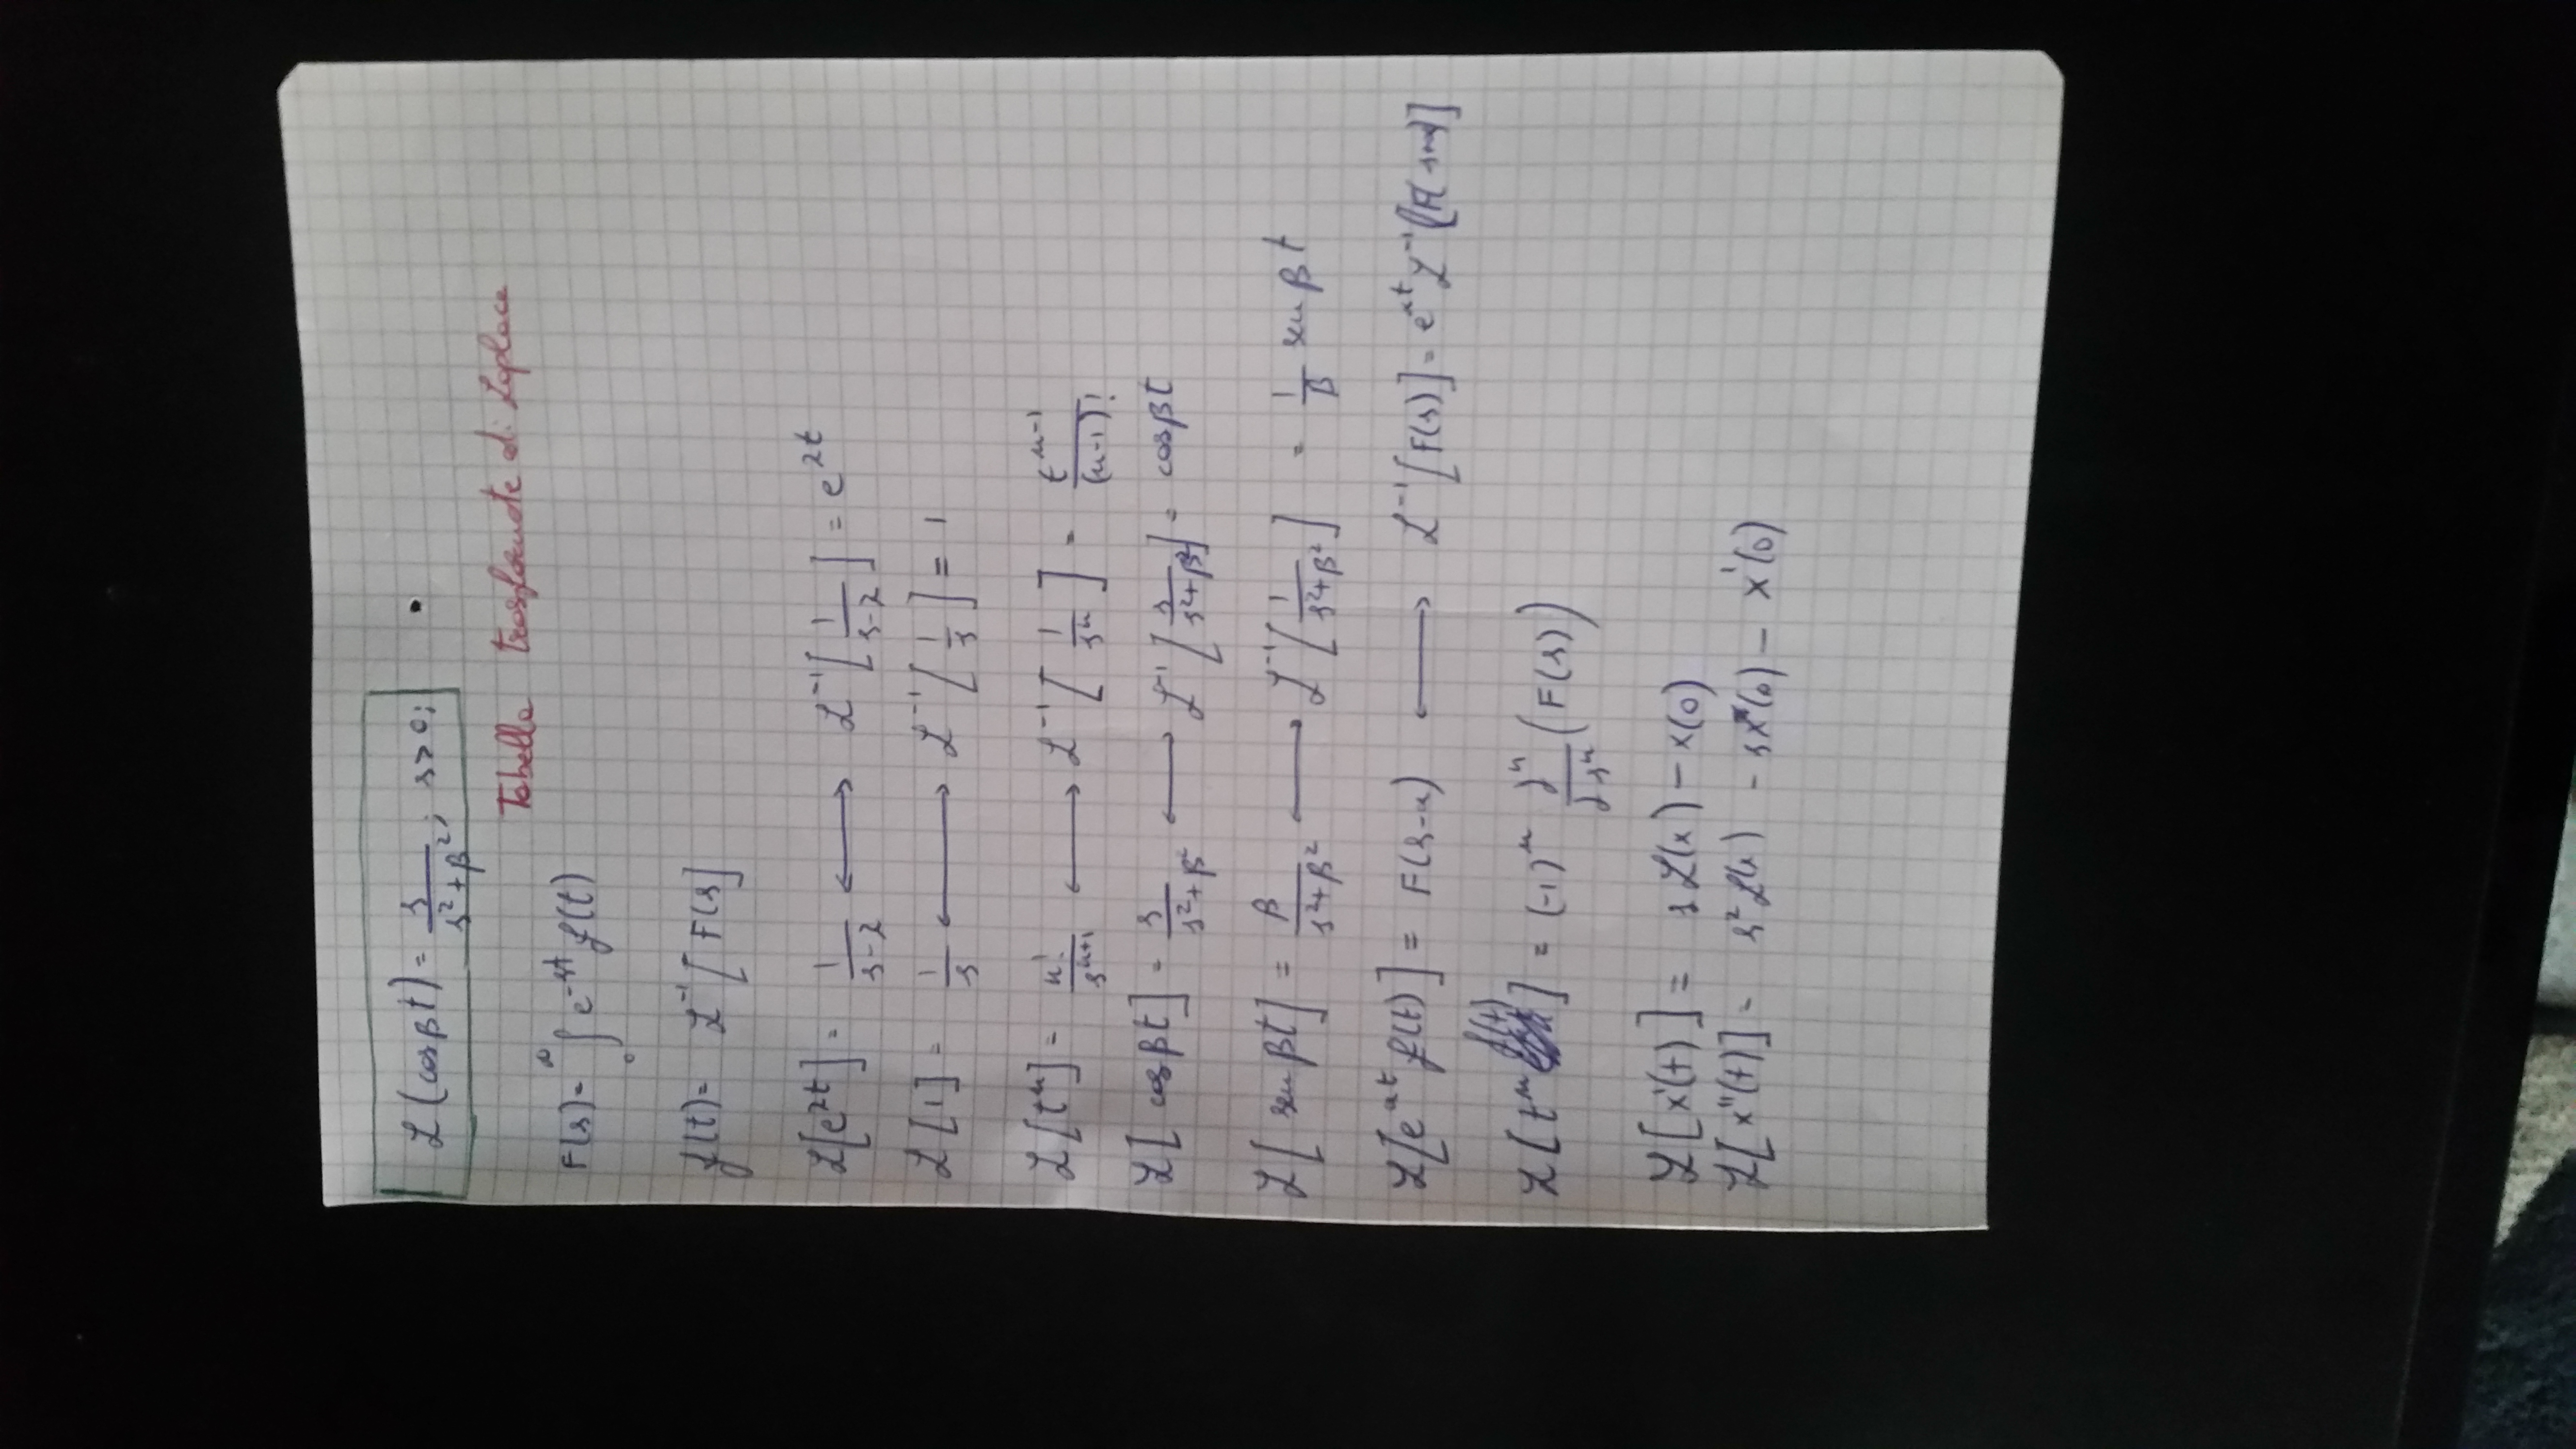 ℒ(cosβt) = s/(s²+β²); s>0;
Tabella trasformate di Laplace
F(s)= ∫₀^∞ e^-st f(t)
f(t)= ℒ⁻¹[F(s]
ℒ[e^2t] = 1/(s-2) ⟷ ℒ⁻¹[1/(s-2)] = e^2t
ℒ[1] = 1/s ⟷ ℒ⁻¹[1/s] = 1
ℒ[t^n] = n!/s^(n+1) ⟷ ℒ⁻¹[1/s^n] = t^(n-1)/(n-1)!
ℒ[cosβt] = s/(s²+β²) ⟷ ℒ⁻¹[s/(s²+β²)] = cosβt
ℒ[sen βt] = β/(s²+β²) ⟷ ℒ⁻¹[1/(s²+β²)] = 1/β sen βt
ℒ[e^at f(t)] = F(s-a) ⟷ ℒ⁻¹[F(s)] = e^at ℒ⁻¹[F(s+a)]
ℒ[t^n f(t)] = (-1)^n d^n/ds^n (F(s))
ℒ[x'(t)] = sℒ(x) - x(0)
ℒ[x''(t)] = s²ℒ(x) - sx(0) - x'(0)